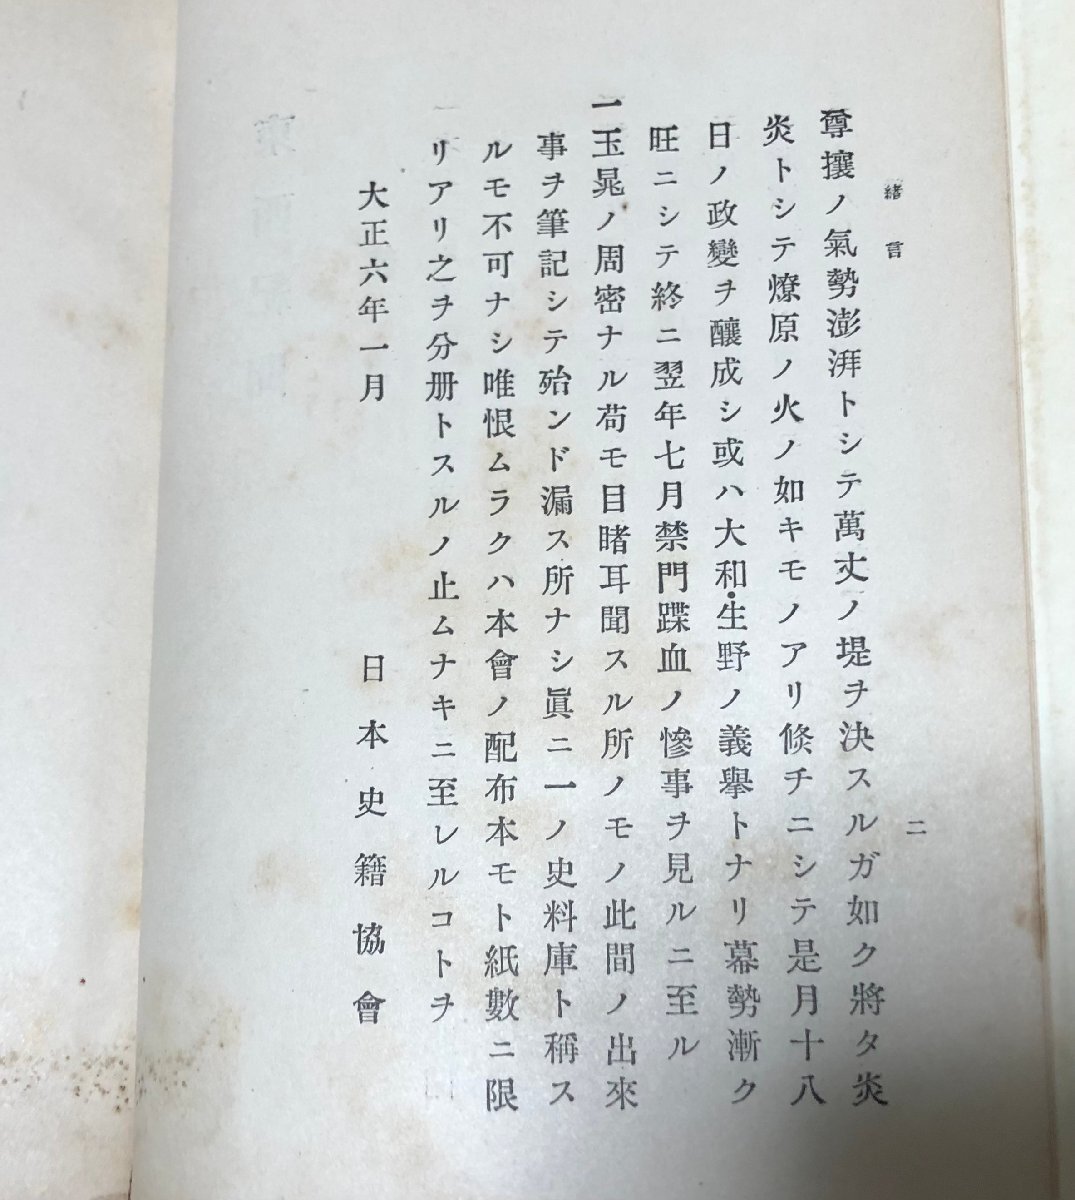 緒言
二
尊攘ノ氣勢澎湃トシテ萬丈ノ堤ヲ決スルガ如ク將タ炎
炎トシテ燎原ノ火ノ如キモノアリ倐チニシテ是月十八
日ノ政變ヲ釀成シ或ハ大和・生野ノ義擧トナリ幕勢漸ク
旺ニシテ終ニ翌年七月禁門蹀血ノ慘事ヲ見ルニ至ル
一玉晁ノ周密ナル苟モ目睹耳聞スル所ノモノ此間ノ出來
事ヲ筆記シテ殆ンド漏ス所ナシ眞ニ一ノ史料庫ト稱ス
ルモ不可ナシ唯恨ムラクハ本會ノ配布本モト紙數ニ限
リアリ之ヲ分册トスルノ止ムナキニ至レルコトヲ
大正六年一月
日本史籍協會